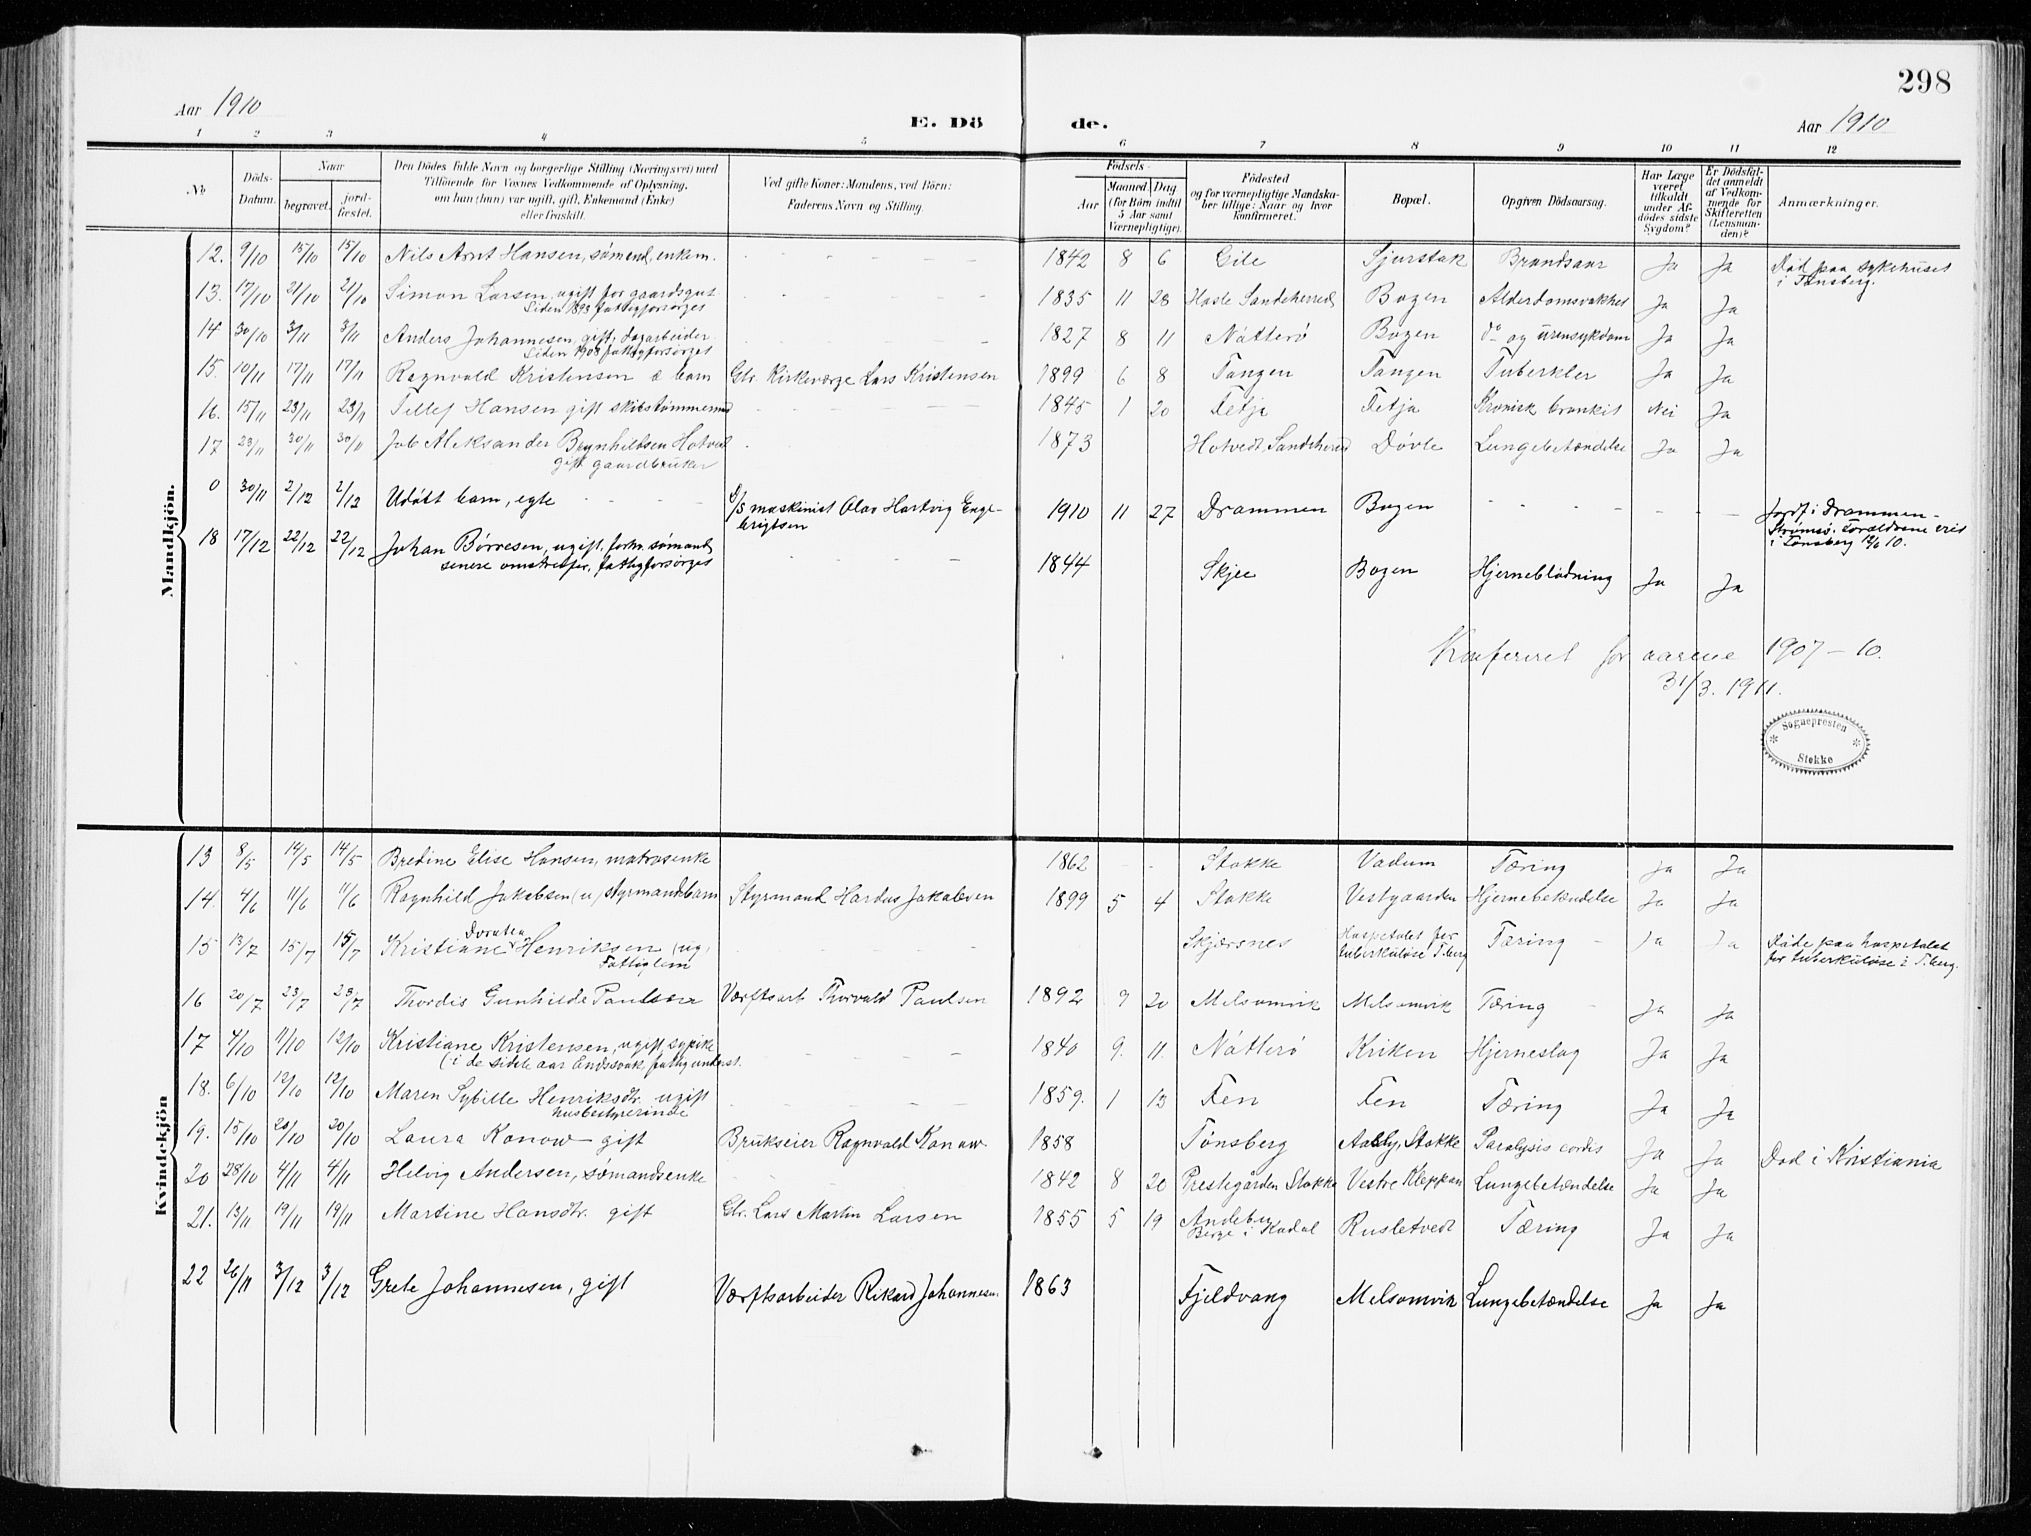 298
Aar 1910
E. Dö de.
Aar 1910
1 2 3 4 5 6 7 8 9 10 11 12
No Döds-Datum. Naar begravet. jord-fæstet. Den Dödes fulde Navn og borgerlige Stilling (Næringsvei) med Tilföiende for Voxnes Vedkommende af Oplysning, om han (hun) var ugift, gift, Enkemand (Enke) eller fraskilt. Ved gifte Koner: Mandens, ved Börn: Faderens Navn og Stilling. Födsels- Aar Maaned. Dag (for Börn indtil 5 Aar samt Værnepligtige). Födested og for værnepligtige Mandskaber tillige: Naar og hvor konfirmeret. Bopæl. Opgiven Dödsaarsag. Har Læge været tilkaldt under Afdödes sidste Sygdom? Er Dödsfaldet anmeldt af Vedkommende for Skifteretten (Lensmanden)? Anmærkninger.
Mandkjön.
12. 9/10 15/10 15/10 Nils Arnt Hansen, sømand, enkem. 1842 8 6 Eile Sjuestok Ja Ja Død paa sykehuset
i Tønsberg.
13. 17/10 21/10 21/10 Simon Larsen, ugift for gaardsgut 1835 11 28 Hasle Sandeherred Bogen Alderdomsvakhet Ja Ja
Siden 1893 fattigforsørget
14 30/10 3/11 3/11 Anders Johannesen, gift, dagarbeider 1827 8 11 Nøtterø Bogen do og urinsykdom Ja Ja
Siden 1908 fattigforsørget
15. 10/11 17/11 17/11 Ragnvald Kristensen æ barn Gbr. Kirkeværge Lars Kristensen 1899 6 8 Tangen Tangen Tuberkler Ja Ja
16. 15/11 23/11 23/11 Tellef Hansen gift skibstømmermd 1845 1 20 Fetja Fetja Kronisk bronkit Nei Ja
17 23/11 30/11 30/11 Job Aleksander Brynhildsen Hotvedt 1873 Hotvedt, Sandeherred Døvle Lungebetændelse Ja Ja
gift gaardbruker
0 30/11 2/12 2/12 Udøbt barn, egte D/S maskinist Olav Hartvig Enge-
brigtsen 1910 11 27 Drammen Bogen Jordf. i Drammen -
Strømsø. Forældrene viet
i Tønsberg 12/6 10.
18 17/12 22/12 22/12 Johan Børresen, ugift, forhv. sømand, 1844 Skjee Bogen Hjerneblødning Ja Ja
senere omstreifer, fattigforsørget
Konfereret for aarene 1907 - 10.
31/3. 1911.
Sogneprestен
Stokke
Kvindekjön
13 8/5 14/5 14/5 Bredine Elise Hansen, matrosenke 1862 Stokke Vadum Tæring Ja Ja
14. 4/6 11/6 11/6 Ragnhild Jakobsen (u) styrmandsbarn Styrmand Hardus Jakobsen 1899 5 4 Stokke Vestgaarden Hjernebetændelse Ja Ja
15 13/7 15/7 15/7 Kristiane Dorutea Henriksen (ug, Skjærsnes Hospitalet for
tuberkuløse T.berg Tæring Ja Ja Døde paa hospitalet
for tuberkuløse i T.berg.
Fattiglem
16 20/7 23/7 23/7 Thordis Gunhilde Paulsen Værftsarb Thorvald Paulsen 1892 9 20 Melsomvik Melsomvik Tæring Ja Ja
17 4/10 11/10 12/10 Kristiane Kristensen, ugift sypike 1840 9. 11. Nøtterø Kriken Hjerneslag Ja Ja
(i de sidste aar aandssvak, fattigunderst.
18. 6/10 12/10 12/10 Maren Sybille Henriksdtr. ugift 1859. 1 13 Fen Fen Tæring Ja Ja
husbestyrerinde
19. 15/10 20/10 20/10 Laura Konow - gift Brukseier Ragnvald Konow. 1858 Tønsberg Aaby, Stokke Paralysis cordis Ja Ja Død i Kristiania
20 28/10 4/11 4/11 Helvig Andersen, sømandsenke 1842 8 20 Prestegården Stokke Vestre Kleppan Lungebetændelse Ja Ja
21. 13/11 19/11 19/11 Martine Hansdtr. gift Gbr. Lars Martin Larsen 1855 5 19 Andebu
Berge i Kodal Rusletvedt Tæring Ja Ja
22 26/11 3/12 3/12 Grete Johannesen, gift Værftsarbeider Rikard Johannesen. 1863 Fjeldvang Melsomvik Lungebetændelse Ja Ja